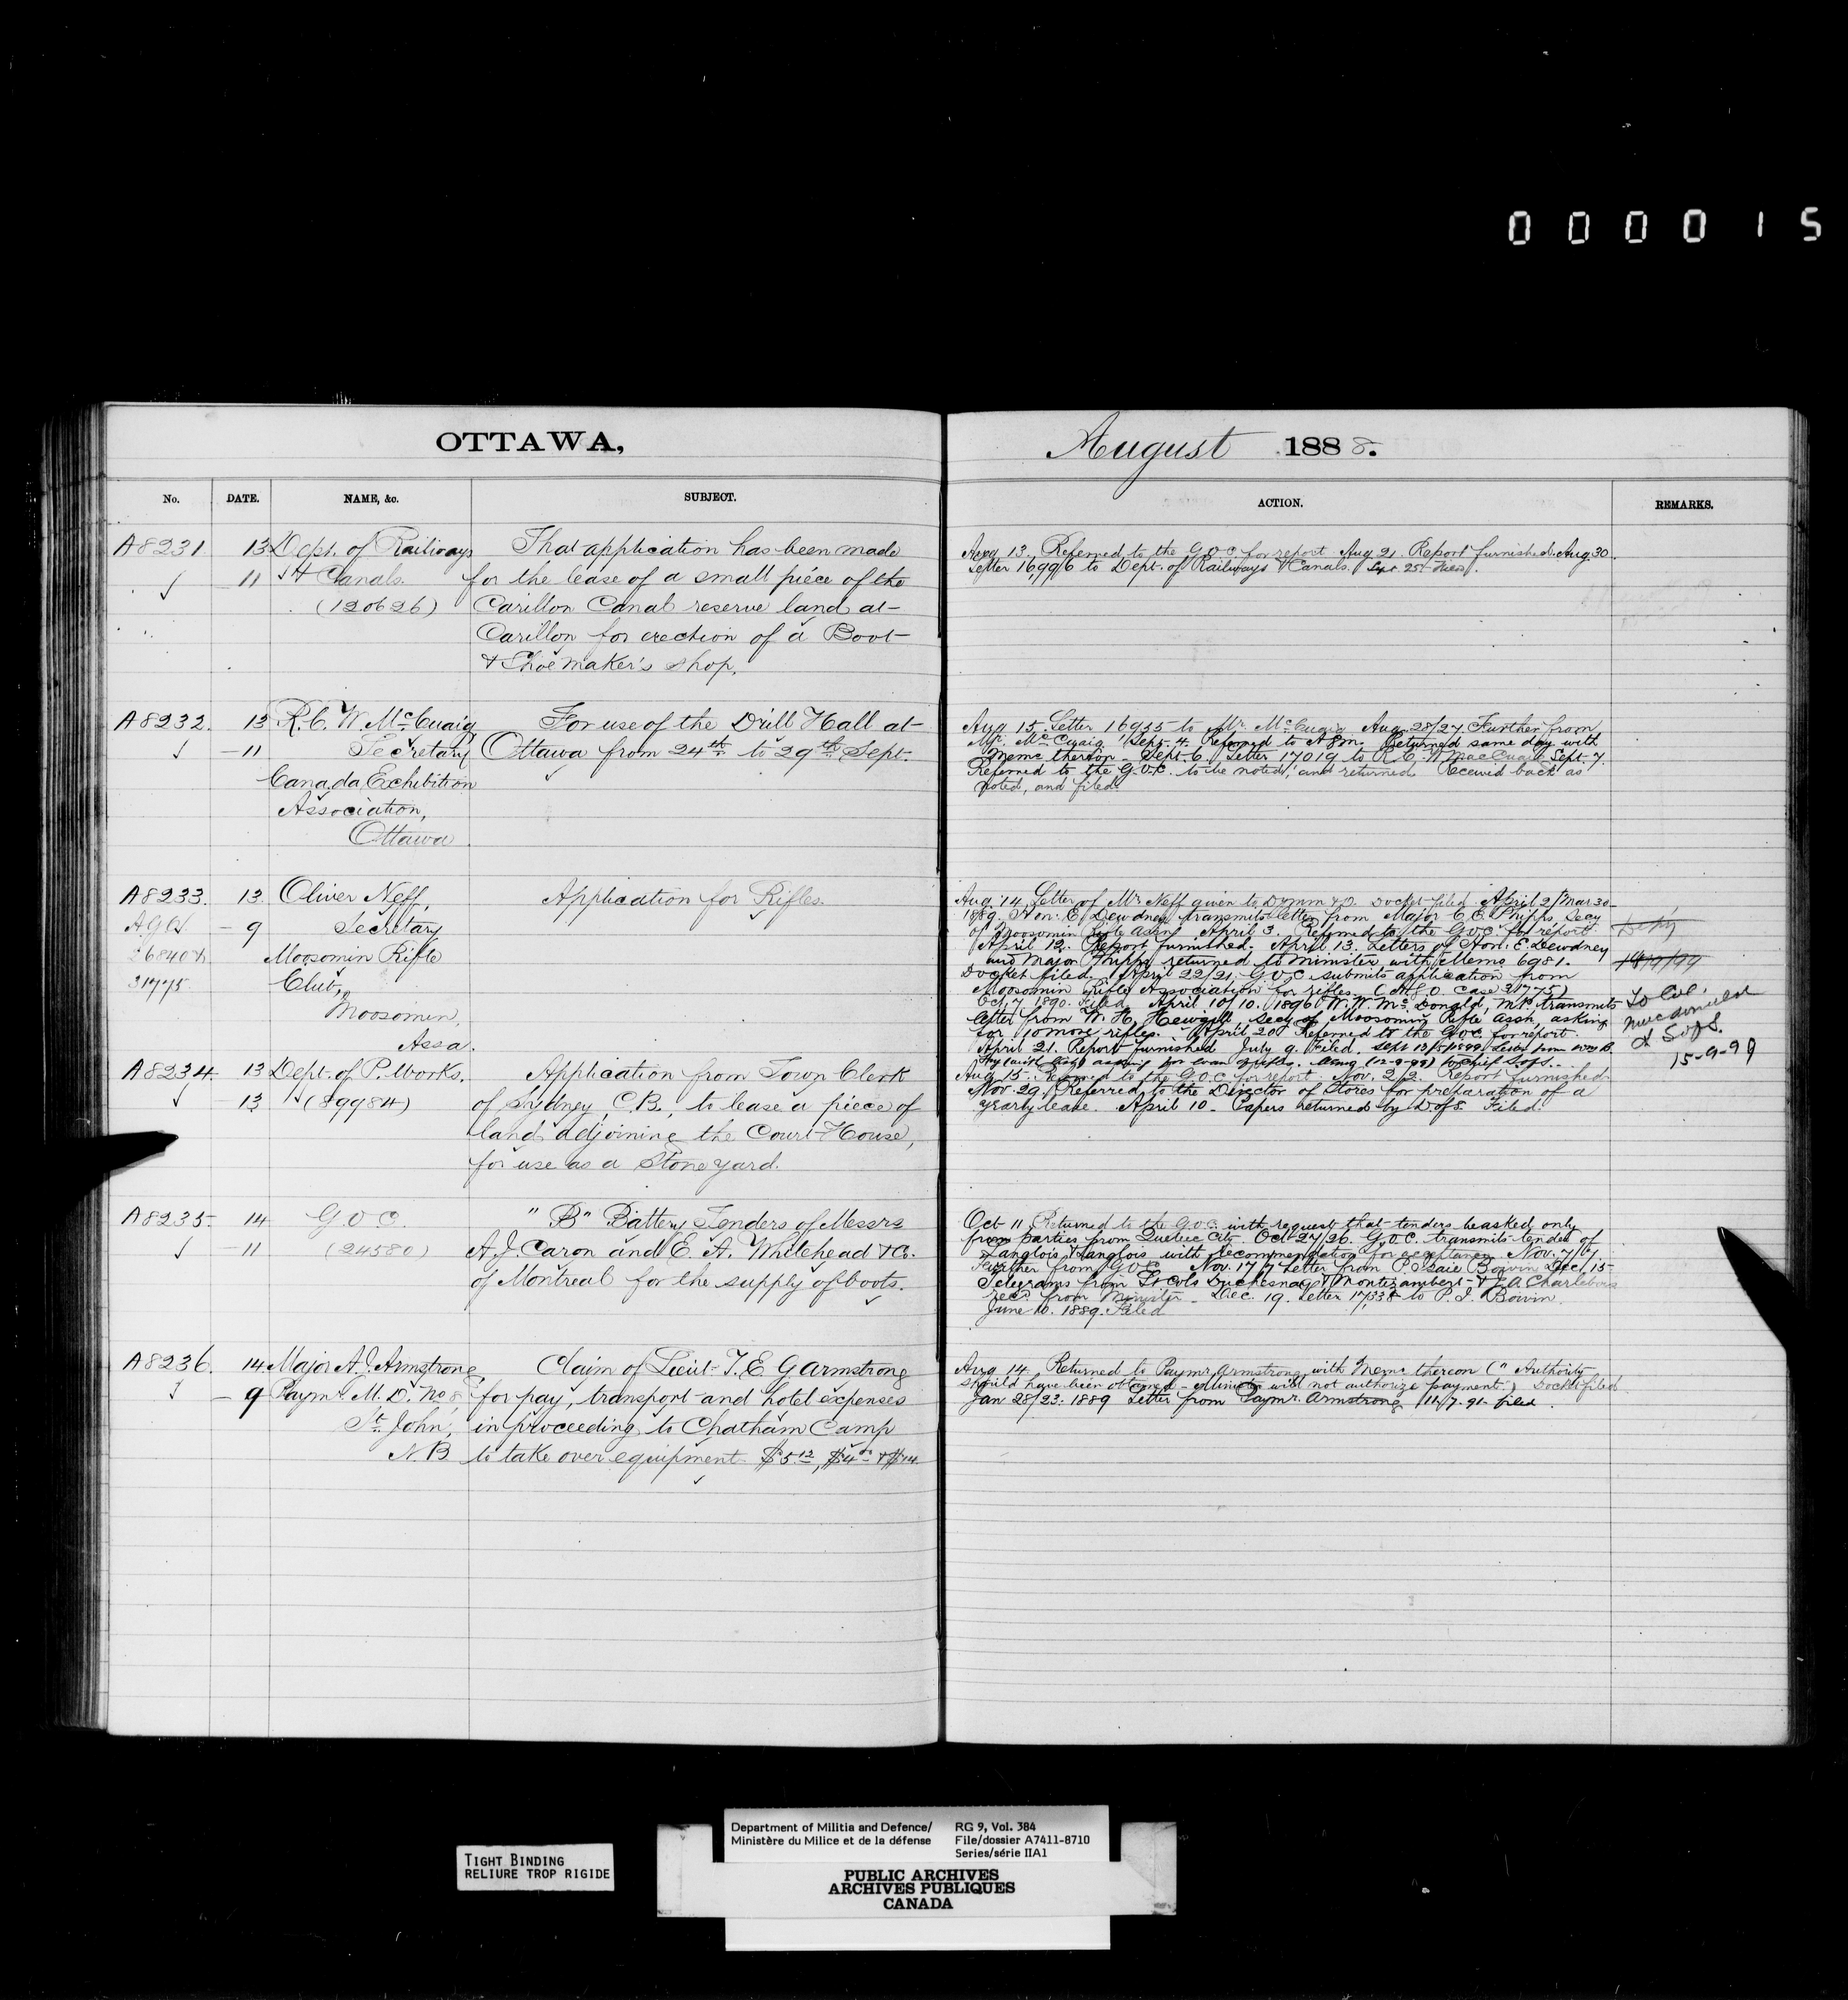 000015
OTTAWA,
August 1888.
No. DATE. NAME, &c. SUBJECT. ACTION. REMARKS.
A8231 13 Dept. of Railways That application has been made
11 & Canals. for the lease of a small piece of the
(120626) Carillon Canal reserve land at
Carillon for erection of a Boot
& Shoemaker's shop.
Aug 13. Referred to the G.O.C. for report. Aug 21. Report furnished. Aug 30.
Letter 16996 to Dept. of Railways & Canals. Sept 25 Filed.
A8232. 13 R.C.W. McCuaig For use of the Drill Hall at
11 Secretary Ottawa from 24th to 29th Sept.
Canada Exhibition
Association,
Ottawa
Aug 15. Letter 16935 to Mr. McCuaig Aug 28/27 Further from
Mr. McCuaig. Sept. 4. Referred to Returned same day with
Memo thereon. Sept. 6. Letter 17019 to R.C.W. MacCuaig. Sept. 7.
Referred to the G.O.C. to be noted, and returned. Received back as
noted, and filed.
A8233. 13. Oliver Neff, Application for Rifles.
9 Secretary
Moosomin Rifle
31775 Club,
Moosomin,
Assa.
Aug. 14. Letter of Mr Neff given to Docket filed. April 2/Mar 30
1889. Hon. E. Dewdney transmits letter from Major C.E. Phipps, Secy
of Moosomin Rifle Assn. April 3. Referred to the G.O.C. for report.
April 12. Report furnished. April 13. Letters of Hon. E. Dewdney
and Major Phipps returned to Minister with Memo 6981.
Docket filed. April 22/21. G.O.C. submits application from
Moosomin Rifle Association for rifles. case 31775)
Oct. 7. 1890. Filed. April 10/10. 1896 W.W. McDonald, MP, transmits
letter from W.H. Hewgill, Secy of Moosomin Rifle Assn, asking
for 10 more rifles. April 20. Referred to the G.O.C. for report.
April 21. Report furnished July 9. Filed.
To Col.
Macdonald
D. of S.
15-9-99
A8234. 13 Dept. of P. Works. Application from Town Clerk
13 (89984) of Sydney, C.B., to lease a piece of
land adjoining the Court House,
for use as a Stone yard.
Aug 15. Referred to the G.O.C. for report. Nov. 2/2. Report furnished.
Nov. 29. Referred to the Director of Stores for preparation of a
yearly lease. April 10. Papers returned by D of S. Filed.
A8235. 14 G.O.C. "B" Battery Tenders of Messrs
11 (24580) A.J. Caron and E.A. Whitehead & Co.
of Montreal for the supply of boots.
Oct 11 Returned to the G.O.C. with request that tenders be asked only
from parties from Quebec City. Oct 27/26. G.O.C. transmits tender of
Langlois & Langlois with recommendation for acceptance. Nov. 7/7.
Further from G.O.C. Nov. 17/7 Letter from P. Isaie Boivin Dec. 15
Telegrams from Lt Cols Duchesnay & Montizambert & J.A. Charlebois
recd. from Minister. Dec. 19. Letter 17338 to P.I. Boivin.
June 10. 1889. Filed
A8236. 14 Major A.J. Armstrong, Claim of Lieut. T.E.G. Armstrong
9 Paymr. M.D. No 8, for pay, transport and hotel expenses
St. John, in proceeding to Chatham Camp
N.B. to take over equipment.
Aug 14. Returned to Paymr. Armstrong with Memo. thereon ("Authority
should have been obtained. Minister will not authorize payment.") Docket filed
Jan 28/23. 1889 Letter from Paymr. Armstrong filed.
TIGHT BINDING
RELIURE TROP RIGIDE
Department of Militia and Defence/
Ministère du Milice et de la défense
RG 9, Vol. 384
File/dossier A7411-8710
Series/série IIA1
PUBLIC ARCHIVES
ARCHIVES PUBLIQUES
CANADA